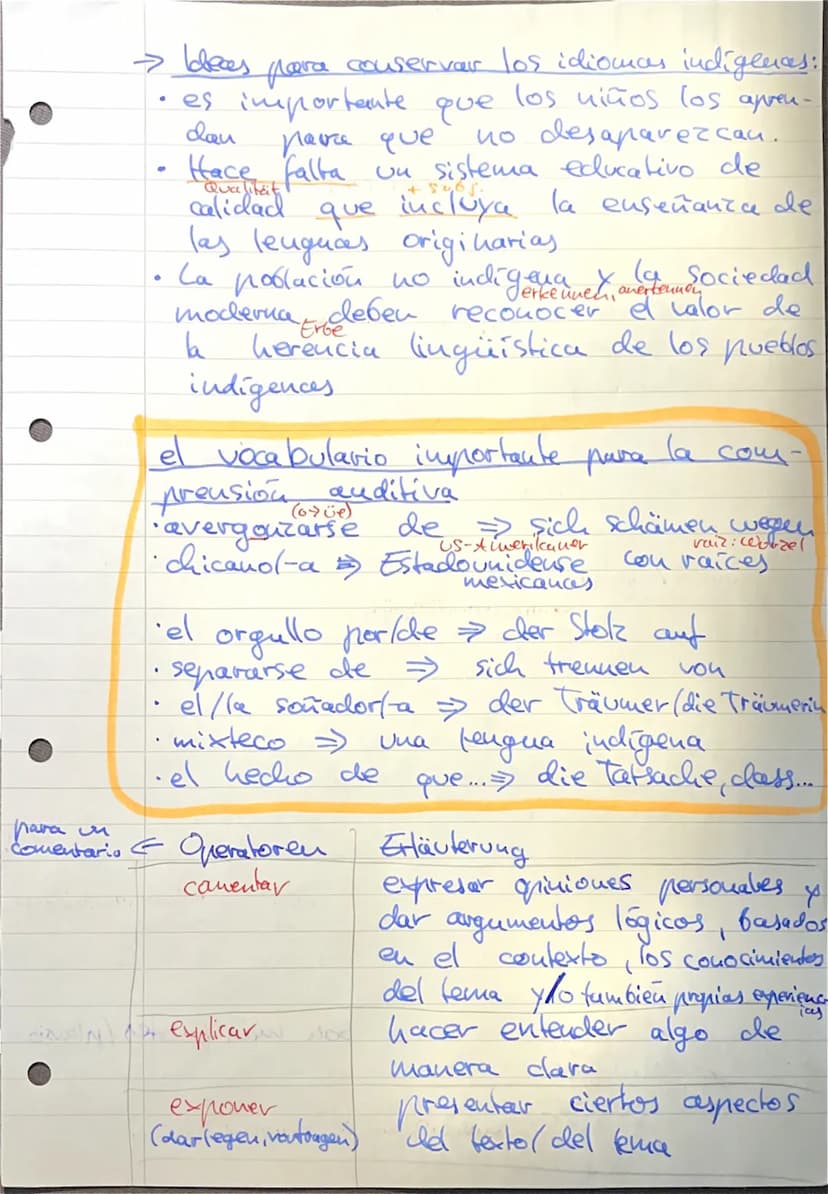 → Ideas para conservar los idiomas indígenas:
• es importante que los niños los apren-
dan para que no desaparezcan.
• Hace falta un sistema educativo de
Qualität + subj.
calidad que incluya la enseñanza de
las lenguas originarias
• La población no indígena y la sociedad
erkennen, anerkennen
moderna deben reconocer el valor de
Erbe
la herencia lingüística de los pueblos
indígenas
el vocabulario importante para la com-
prensión auditiva
(o→üe)
• avergonzarse de ⇒ sich schämen wegen
US-Amerikaner raíz: Wurzel
• chicano/-a ⇒ Estadounidense con raíces
mexicanas
• el orgullo por/de ⇒ der Stolz auf
• separarse de ⇒ sich trennen von
• el/la soñador/-a ⇒ der Träumer/die Träumerin
• mixteco ⇒ una lengua indígena
• el hecho de que... ⇒ die Tatsache, dass...
para un
comentario ← Operatoren Erläuterung
comentar expresar opiniones personales y
dar argumentos lógicos, basados
en el contexto, los conocimientos
del tema y/o también propias experienc-
ias
explicar hacer entender algo de
manera clara
exponer presentar ciertos aspectos
(darlegen, vortragen) del texto/del tema